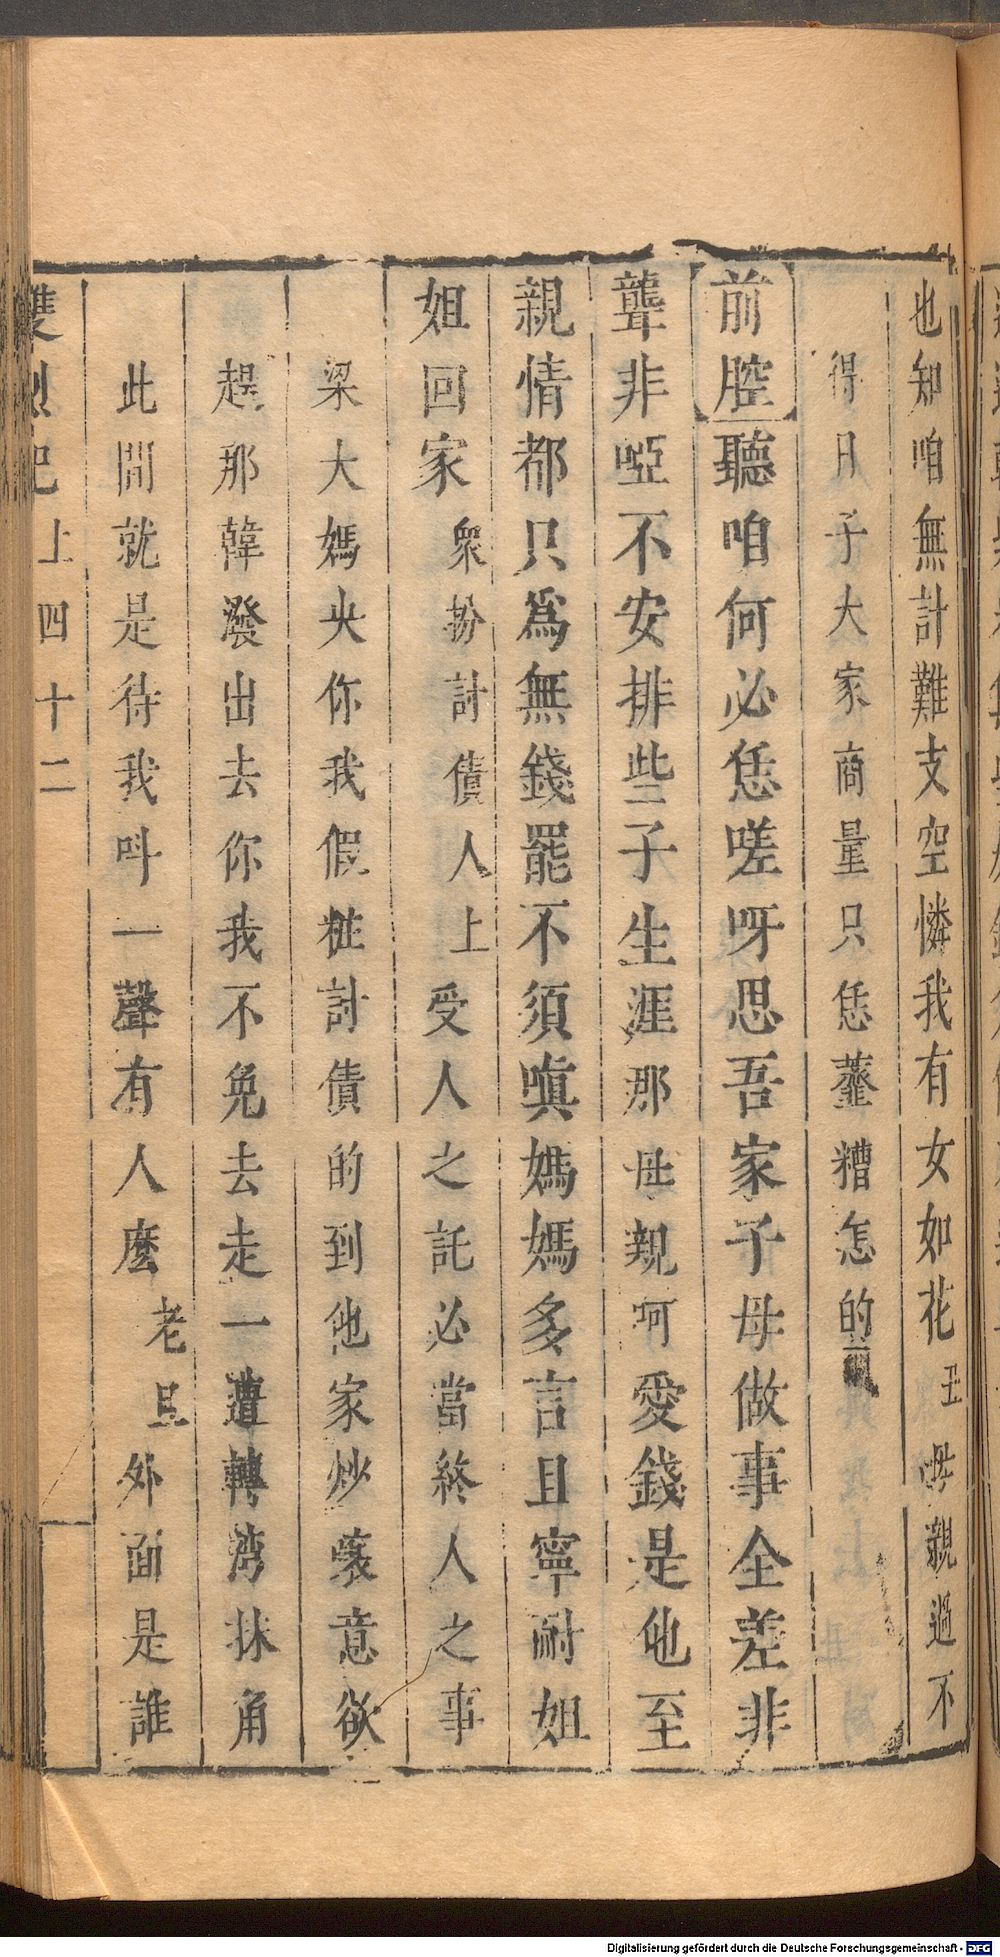 也知咱無計難支空憐我有女如花丑母親過不
得日子大家商量只恁虀糟怎的
前腔聽咱何必恁嗟呀思吾家子母做事全差非
聾非啞不安排些子生涯那母親呵愛錢是他至
親情都只爲無錢罷不須嗔媽媽多言且寧耐姐
姐回家衆扮討債人上受人之託必當終人之事
梁大媽央你我假粧討債的到他家炒嚷意欲
趕那韓潑出去你我不免去走一遭轉湾抹角
此間就是待我呌一聲有人麽老旦外面是誰
雙烈記上四十二
Digitalisierung gefördert durch die Deutsche Forschungsgemeinschaft - DFG